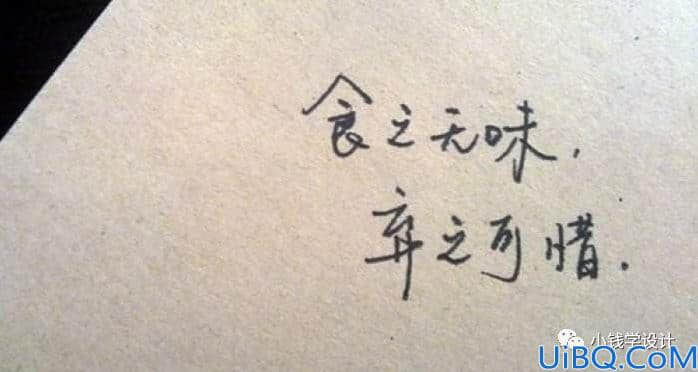 食之无味,
弃之可惜.
小钱学设计
UiBQ.CoM